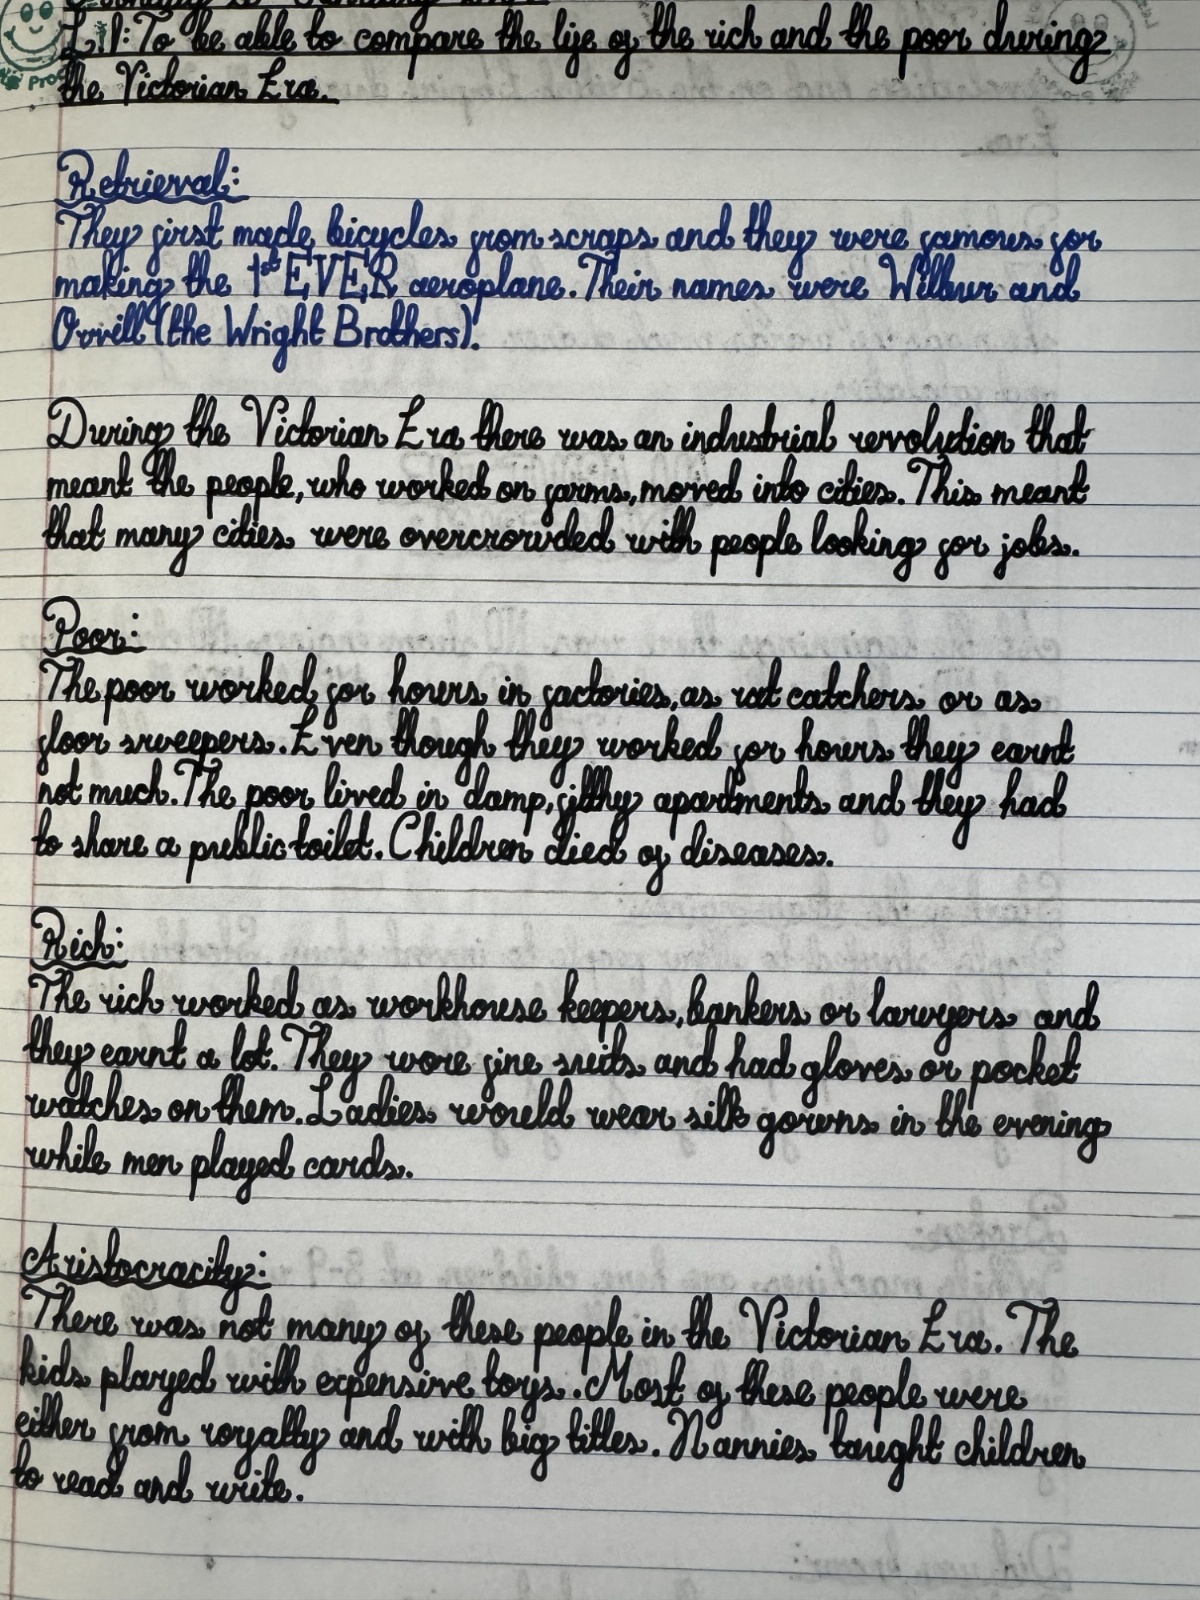 L.I: To be able to compare the life of the rich and the poor during
the Victorian Era.
Retrieval:
They first made bicycles from scraps and they were famous for
making the 1st EVER aeroplane. Their names were Wilbur and
Orvill (the Wright Brothers).
During the Victorian Era there was an industrial revolution that
meant the people, who worked on farms, moved into cities. This meant
that many cities were overcrowded with people looking for jobs.
Poor:
The poor worked for hours in factories, as rat catchers or as
floor sweepers. Even though they worked for hours they earnt
not much. The poor lived in damp, filthy apartments and they had
to share a public toilet. Children died of diseases.
Rich:
The rich worked as workhouse keepers, bankers or lawyers and
they earnt a lot. They wore fine suits and had gloves or pocket
watches on them. Ladies would wear silk gowns in the evening
while men played cards.
Aristocracity:
There was not many of these people in the Victorian Era. The
kids played with expensive toys. Most of these people were
either from royalty and with big titles. Nannies taught children
to read and write.